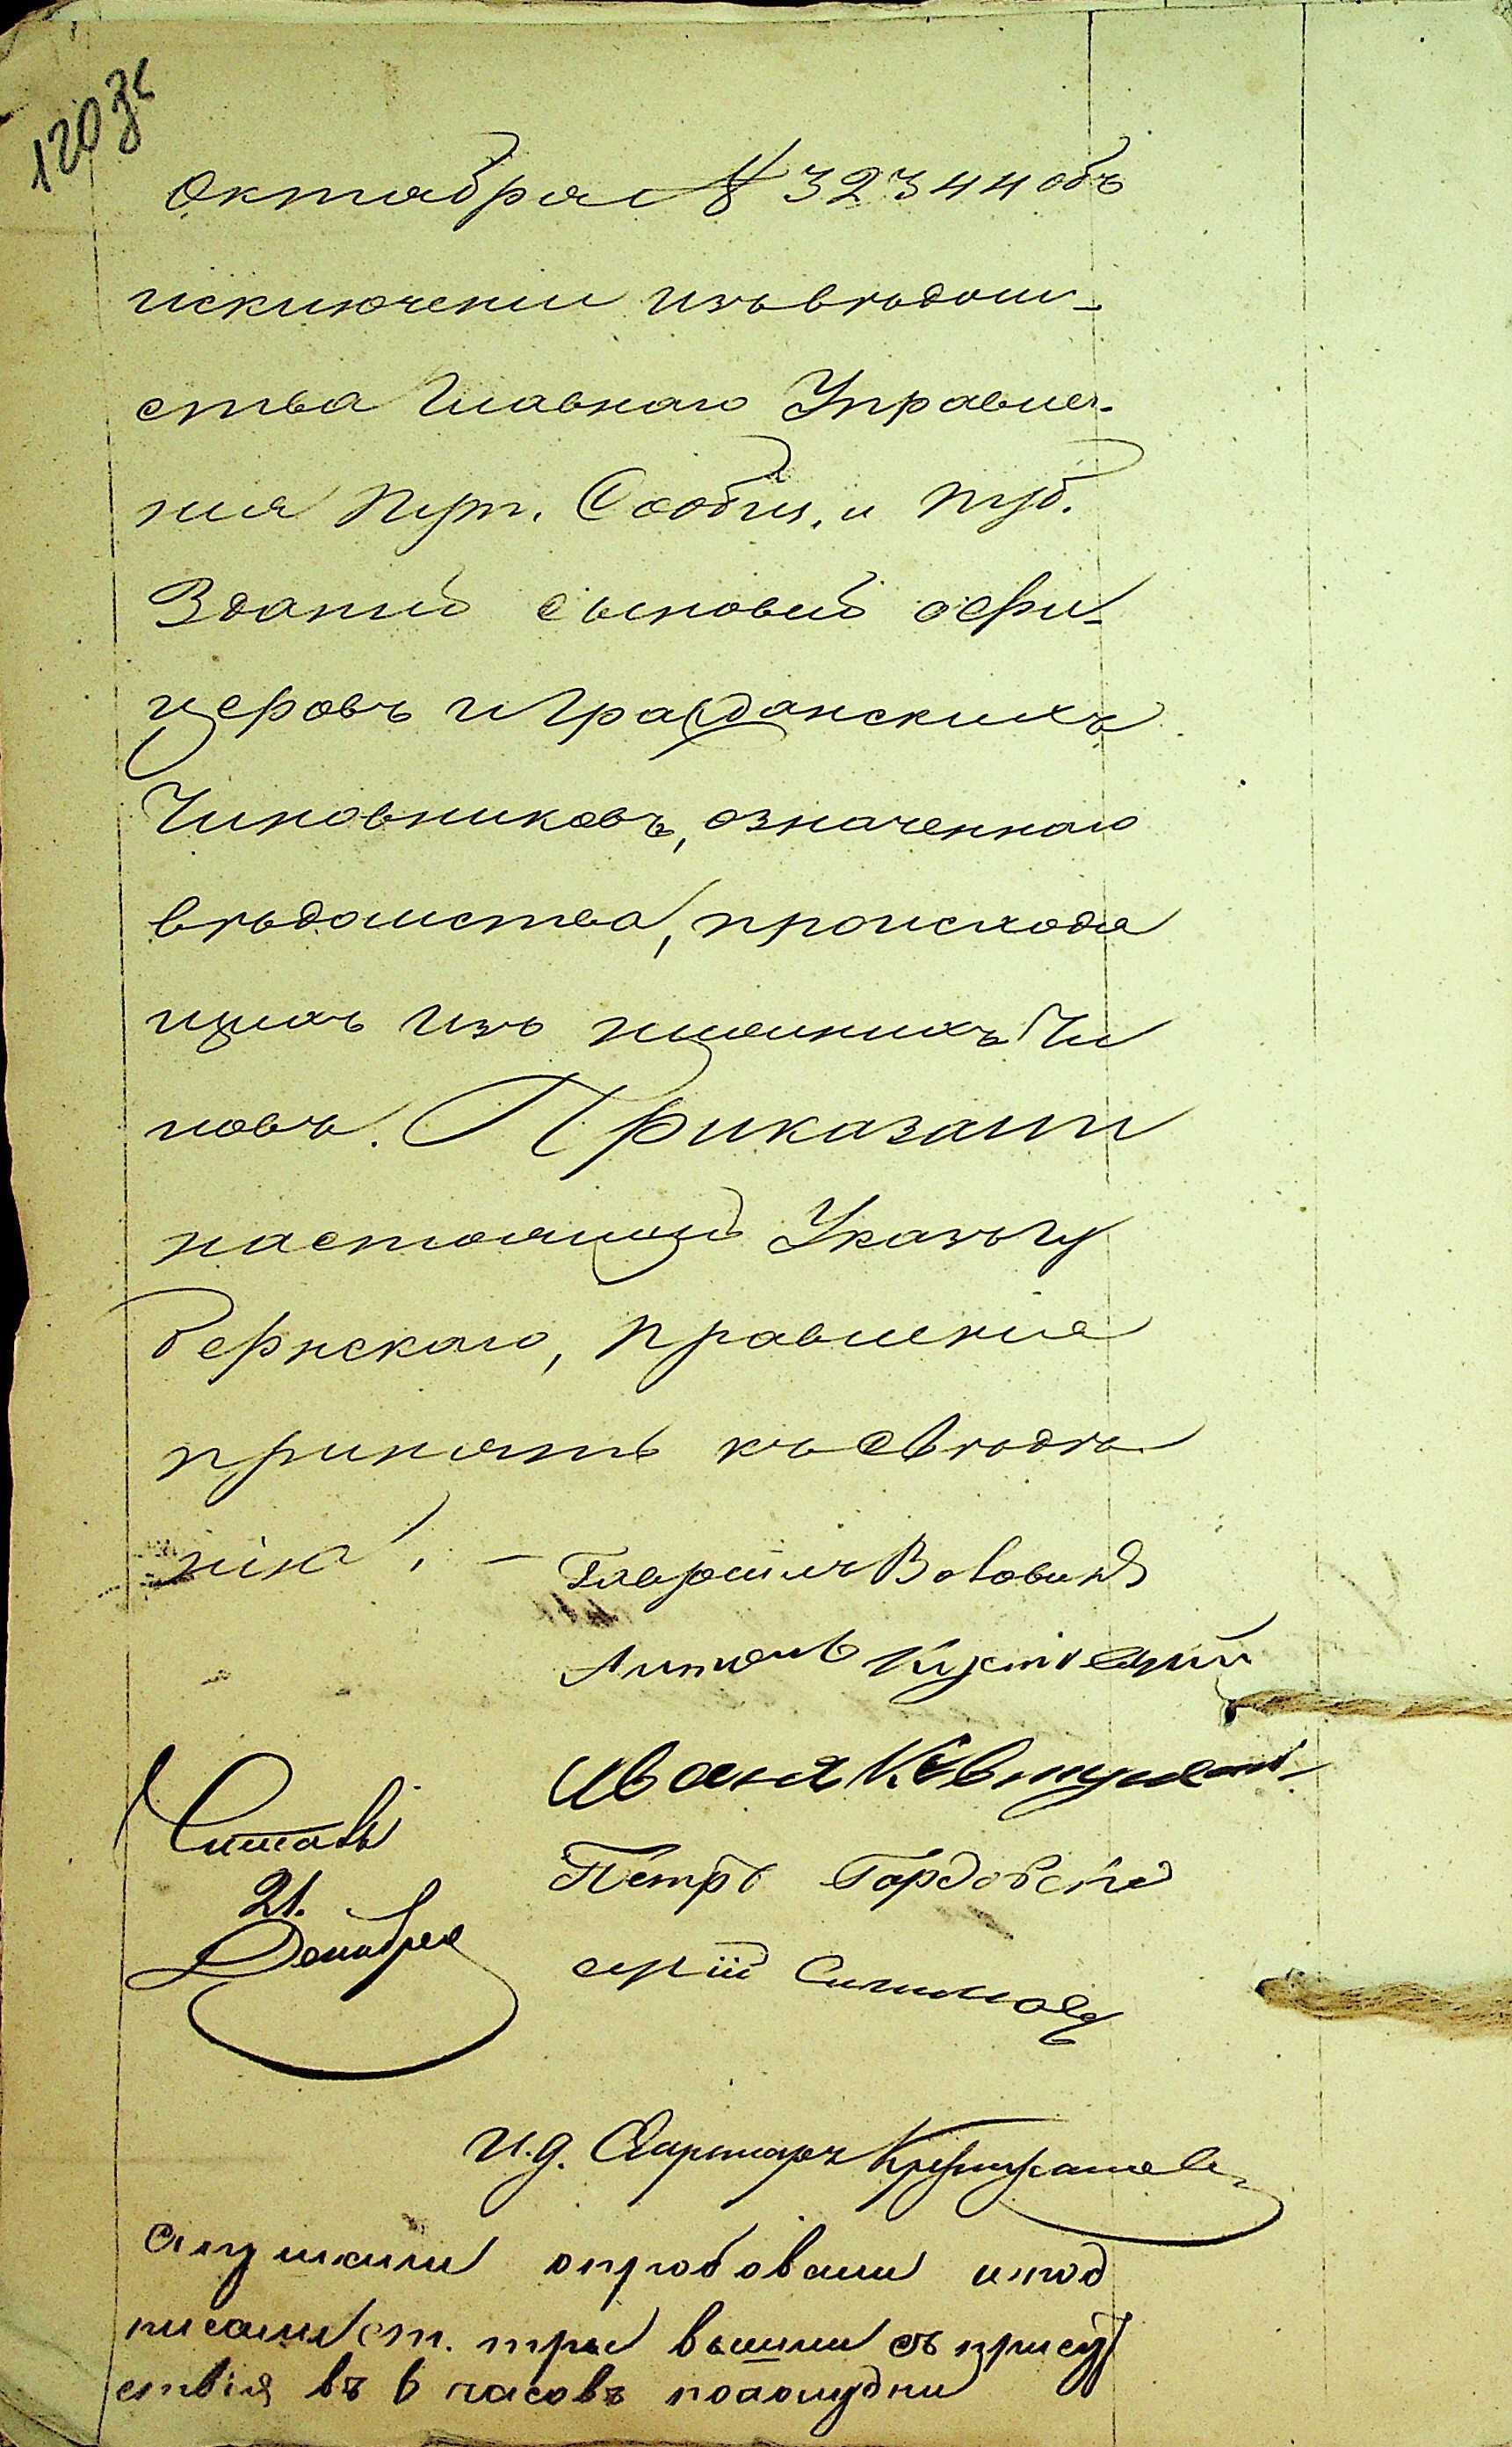 120 зв
Октября № 32344 объ
исключеніи изъ вѣдом-
ства Главнаго Управле-
нія Пут. Сообщ. и Пуб.
Зданій сыновей офи-
церовъ и Гражданскихъ
Чиновниковъ, означеннаго
вѣдомства, происходя
щихъ изъ нижнихъ Чи
новъ. Приказали
настоящій Указъ Гу
бернскаго, Правленія
принять къ свѣдѣ
нію. —
Гаврошилъ Вовкъ
Антонъ
Иванъ
Петръ Гордовскій
Читавъ
21.
Декабря
И.д. Секретаря
слушали опробовали и под
писали ст. три вышли съ присуд
ствія въ 6 часовъ пополудни